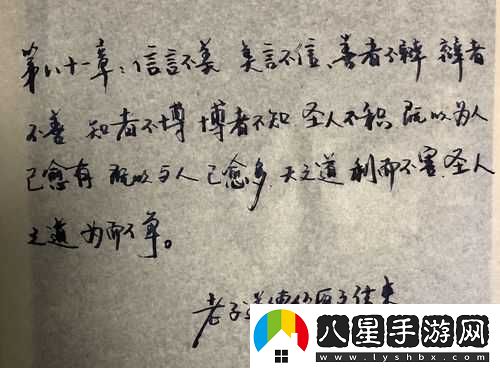 第八十一章：信言不美 美言不信、善者不辩 辩者
不善 知者不博 博者不知 圣人不积 既以为人
己愈有 既以与人 己愈多、天之道 利而不害、圣人
之道 为而不争。
老子道德
八星手游网
www.lyshbx.com